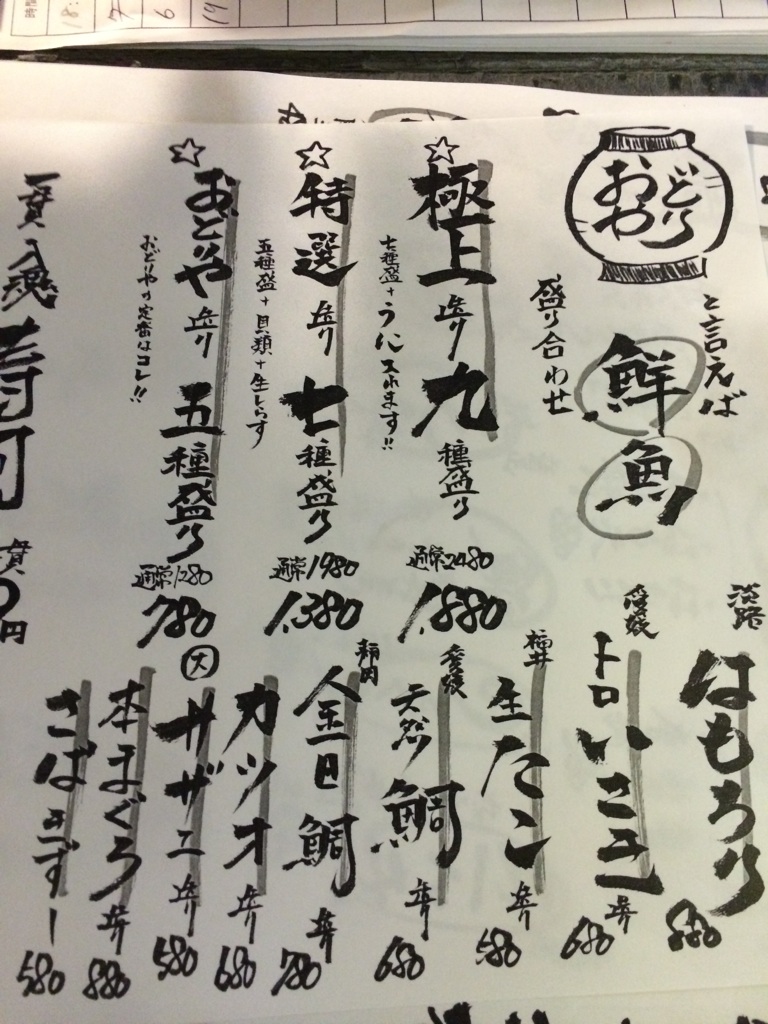 おどりや
と言えば
鮮魚
盛り合わせ
☆極上造り九種盛り
七種盛+うに入ります!!
通常2480
1.880
☆特選造り七種盛り
五種盛+貝類+生しらす
通常1980
1.380
☆おどりや造り五種盛り
おどりやの定番はコレ!!
通常1280
780
淡路
はもちり
880
愛媛
トロいさき造り
680
福井
生たこ造り
580
愛媛
天然鯛造り
680
静岡
金目鯛造り
780
カツオ造り
680
大
サザエ造り
580
本まぐろ造り
880
さばきずし
580
一貫入魂
寿司
貫
円
18:
7
6
19